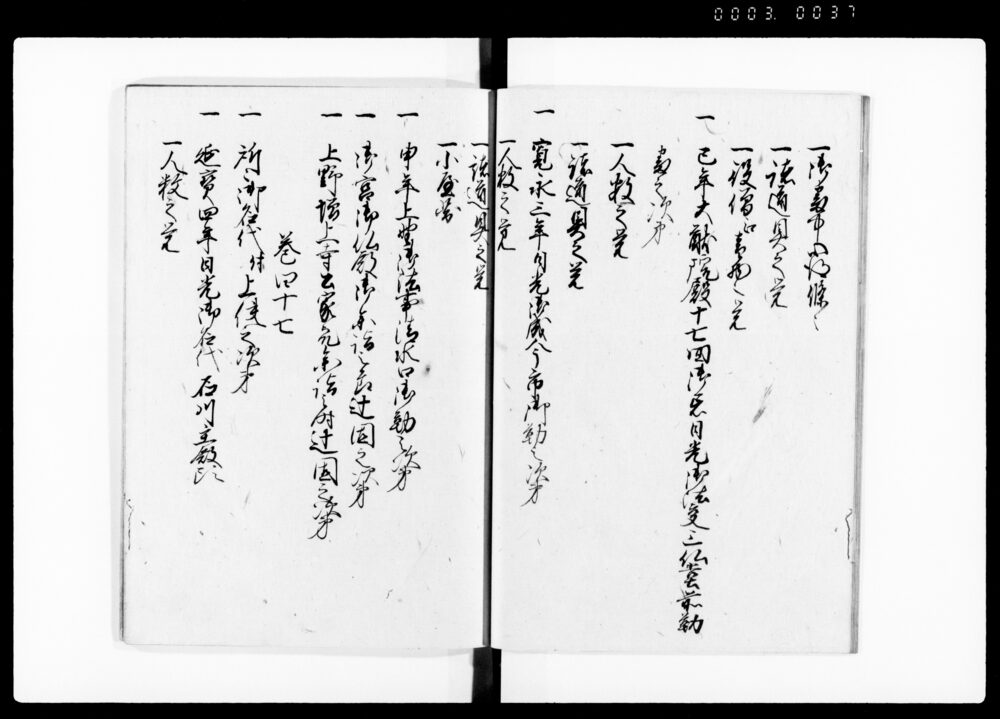 0003. 0037
一御番中
一諸道具之覚
一役僧
一 巳年大猷院殿十七回御忌日光御法事三仏堂前勤
番之次第
一人数之覚
一諸道具之覚
一 寛永三年日光御成今市御勤之次第
一人数之覚
一諸道具之覚
一小屋
一 申年上野御法事清水口御勤之次第
一 御宮御仏殿御参詣之節辻固之次第
一 上野増上寺公家衆参詣之時辻固之次第
巻四十七
一 所々御名代 上使之次第
一 延寳四年日光御名代 石川主殿頭
一人数之覚